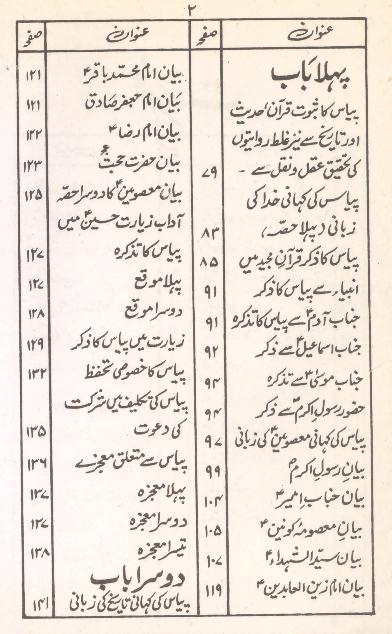 ۲
عنوان صفحہ
پہلا باب
پیاس کا ثبوت قرآن، حدیث
اور تاریخ سے نیز غلط روایتوں
کی تحقیق عقل و نقل سے ۔ ۷۹
پیاس کی کہانی خدا کی
زبانی (پہلا حصہ) ۸۳
پیاس کا ذکر قرآن مجید میں ۸۵
انبیاء سے پیاس کا ذکر ۹۱
جناب آدمؑ سے پیاس کا تذکرہ ۹۱
جناب اسماعیلؑ سے ذکر ۹۲
جناب موسیٰؑ سے تذکرہ ۹۴
حضور رسول اکرمؐ سے ذکر ۹۴
پیاس کی کہانی معصومینؑ کی زبانی ۹۷
بیان رسول اکرمؐ ۹۹
بیان جناب امیرؑ ۱۰۴
بیان معصومہ کونینؑ ۱۰۵
بیان سید الشہداءؑ ۱۰۷
بیان امام زین العابدینؑ ۱۱۹
عنوان صفحہ
بیان امام محمد باقرؑ ۱۲۱
بیان امام جعفر صادق ۱۲۱
بیان امام رضاؑ ۱۲۲
بیان حضرت حجتؑ ۱۲۳
بیان معصومینؑ کا دوسرا حصہ ۱۲۵
آداب زیارت حسینؑ میں
پیاس کا تذکرہ ۱۲۷
پہلا موقع ۱۲۷
دوسرا موقع ۱۲۸
زیارت میں پیاس کا ذکر ۱۲۹
پیاس کا خصوصی تحفظ ۱۳۲
پیاس کی تکلیف میں شرکت
کی دعوت ۱۳۵
پیاس سے متعلق معجزے ۱۳۶
پہلا معجزہ ۱۳۷
دوسرا معجزہ ۱۳۷
تیسرا معجزہ ۱۳۸
دوسرا باب
پیاس کی کہانی تاریخ کی زبانی ۱۴۱